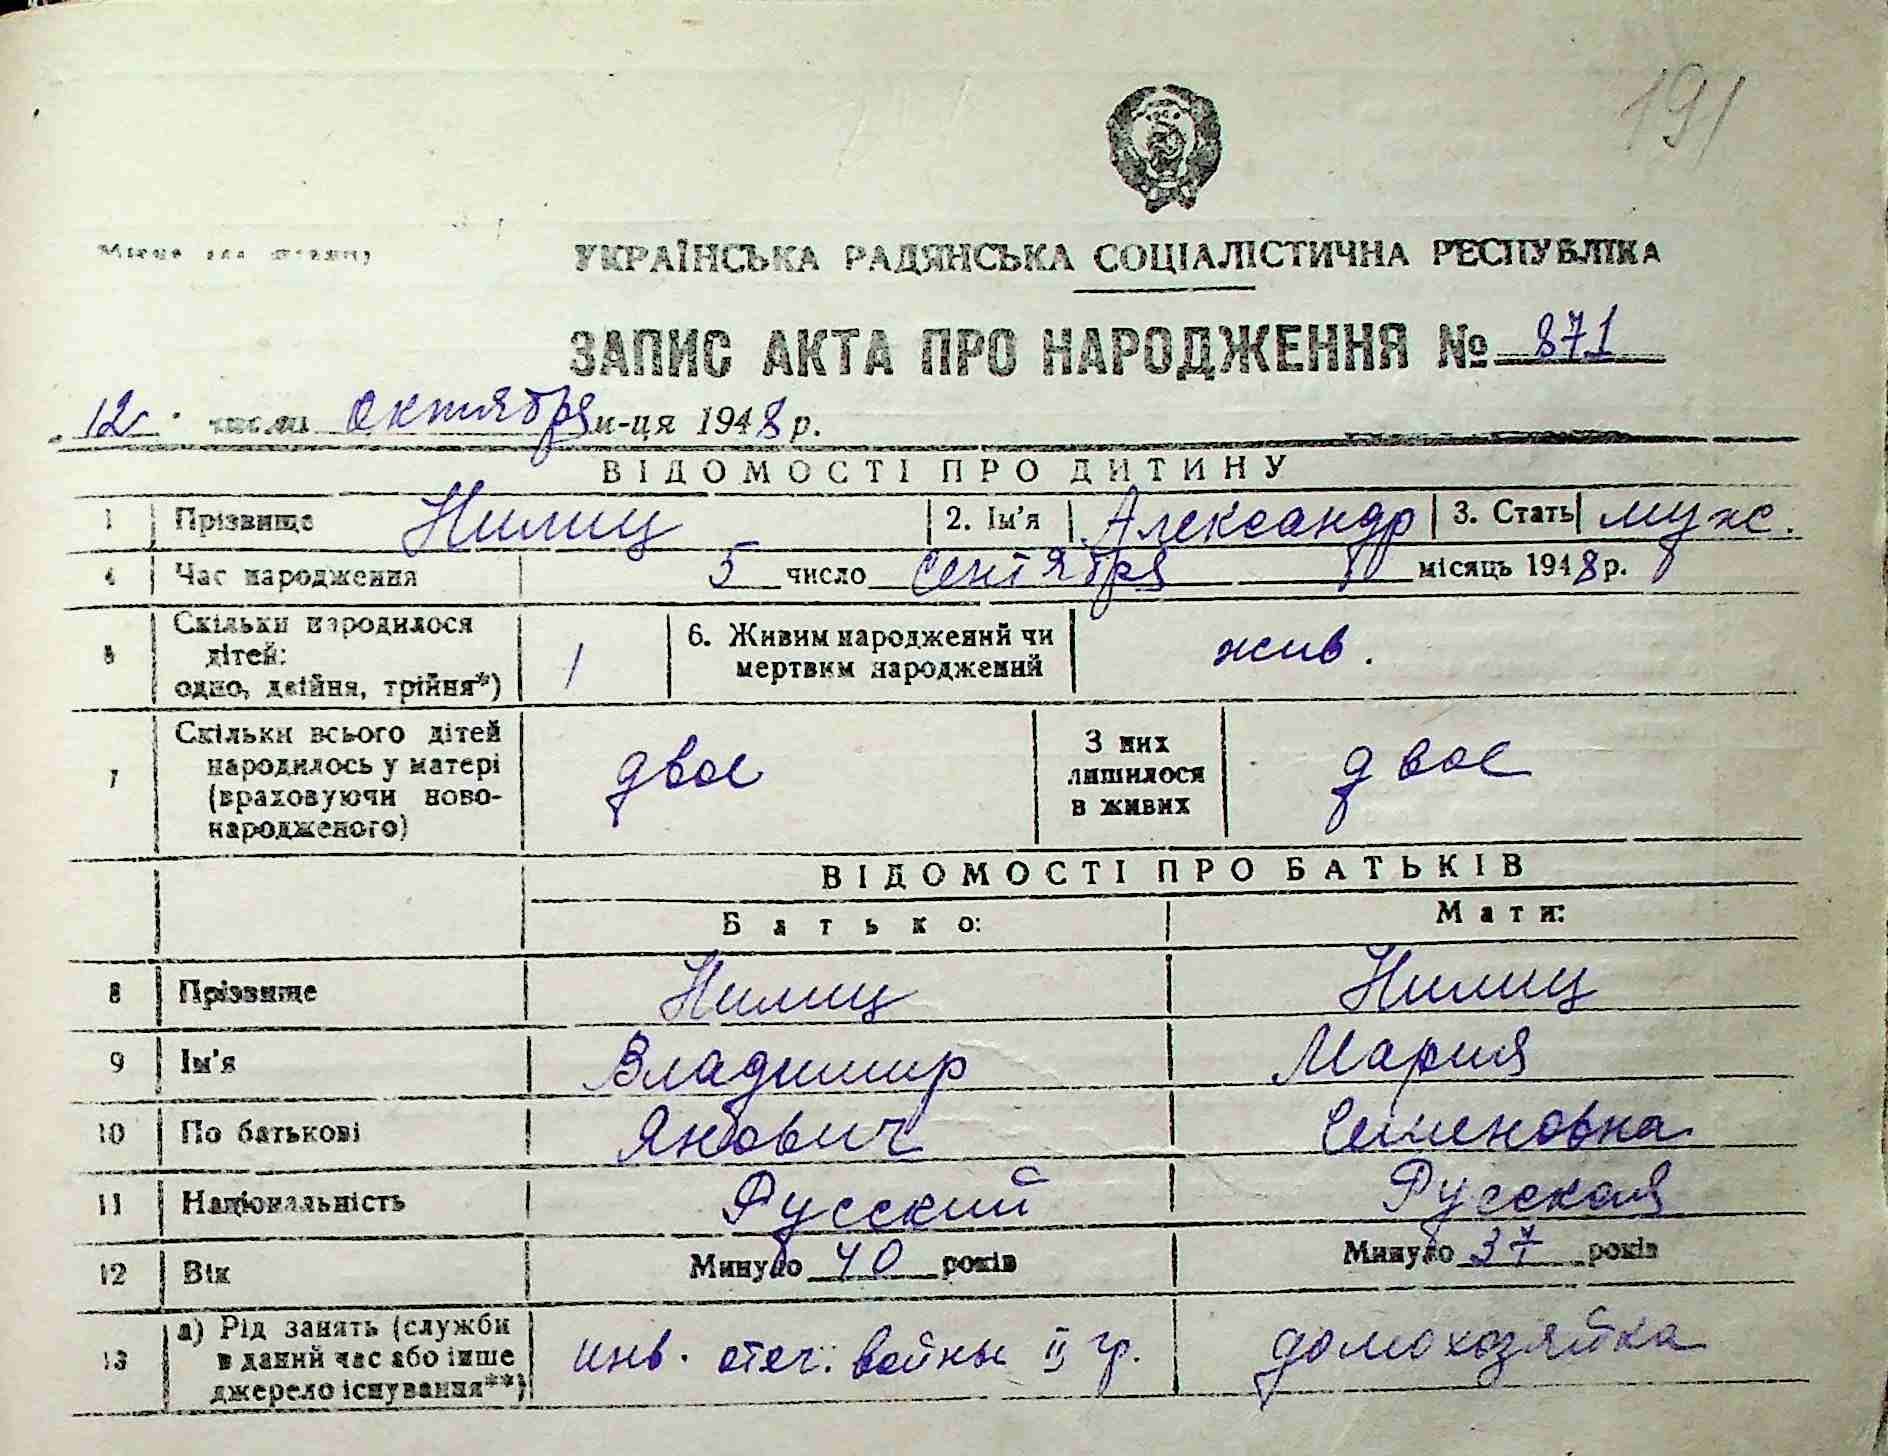 191
Місце для штампу
УКРАЇНСЬКА РАДЯНСЬКА СОЦІАЛІСТИЧНА РЕСПУБЛІКА
ЗАПИС АКТА ПРО НАРОДЖЕННЯ № 871
12 числа октября м-ця 1948 р.
ВІДОМОСТІ ПРО ДИТИНУ
1 Прізвище Нилиц 2. Ім'я Александр 3. Стать муж.
4 Час народження 5 число сентября місяць 1948 р.
5 Скільки народилося дітей: одно, двійня, трійня*) 1 6. Живим народжений чи мертвим народжений жив.
7 Скільки всього дітей народилось у матері (враховуючи ново-народженого) двое З них лишилося в живих двое
ВІДОМОСТІ ПРО БАТЬКІВ
Батько: Мати:
8 Прізвище Нилиц Нилиц
9 Ім'я Владимир Мария
10 По батькові Янович Семеновна
11 Національність Русский Русская
12 Вік Минуло 40 років Минуло 37 років
13 а) Рід занять (служби в даний час або інше джерело існування**) инв. отеч. войны II гр. домохозяйка